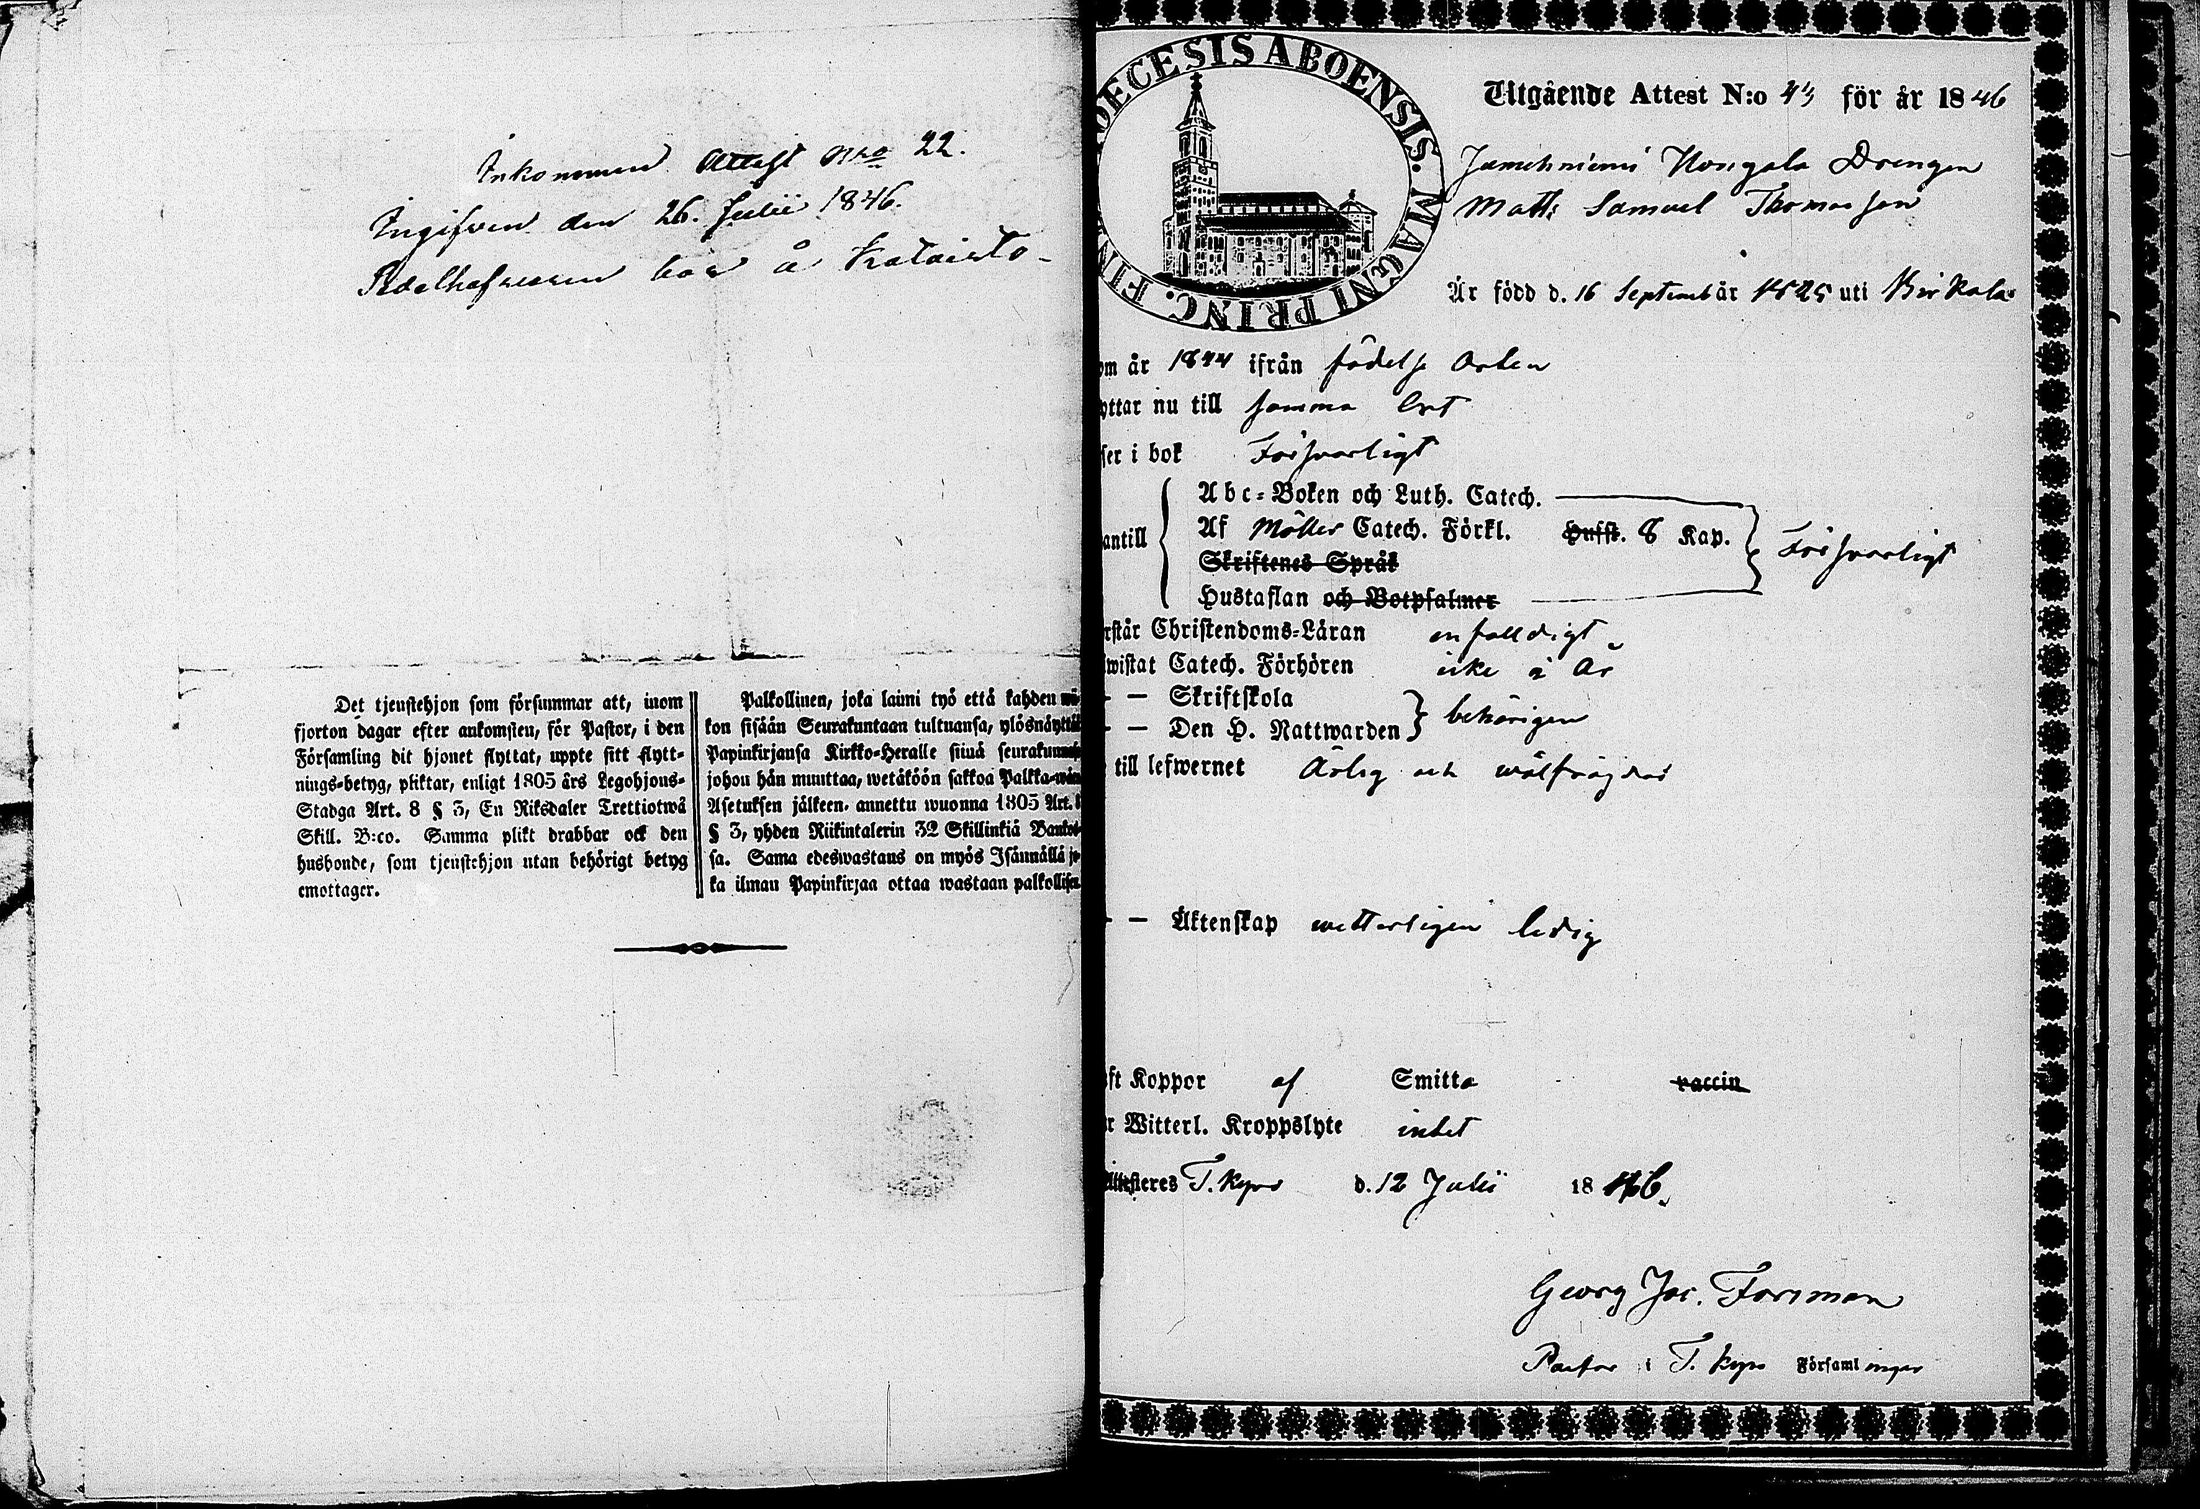 Inkommen Attest Nro 22.
Ingifven den 26. Julii 1846.
Adelhafvaren hos å Kataisto-
Det tjenstehjon som försummar att, inom
fjorton dagar efter ankomsten, för Pastor, i den
Församling dit hjonet flyttat, uppte sitt flytt-
nings-betyg, pliktar, enligt 1805 års Legohjons-
Stadga Art. 8 § 3, En Riksdaler Trettiotwå
Skill. B:co. Samma plikt drabbar ock den
husbonde, som tjenstehjon utan behörigt betyg
emottager.
Palkollinen, joka laimi lyö että kahden wii-
kon sisään Seurakuntaan tultuansa, ylösnäyttää
Papinkirjansa Kirkko-Heralle siinä seurakunnasa
johon hän muuttaa, wetäköön sakkoa Palkka-wäen
Asetuksen jälkeen, annettu wuonna 1805 Art. 8
§ 3, yhden Riikintalerin 32 Skillinkiä Bankos-
sa. Sama edeswastaus on myös Isännällä jo-
ka ilman Papinkirjaa ottaa wastaan palkollisen
DECESIS ABOENSIS. MAGNI PRINC. FIN
Utgående Attest N:o 43 för år 1846
Jumehniemi Drengen
Matts Samuel Thomasson
Är född d. 16 September år 1825 uti Birkala
om år 1844 ifrån födelse Orten
yttar nu till samma Ort
ser i bok Försvarligt
antill
Abc-Boken och Luth. Catech.
Af Möllers Catech. Förkl. Hufst. 8 Kap.
Skriftenes Språk
Hustaflan och Botpsalmer
Försvarligt
rstår Christendoms-Läran enfaldigt
wistat Catech. Förhören icke i År
— — Skriftskola
— — Den H. Nattwarden behörigen
till lefwernet Ärlig och wälfrägdad
— — Äktenskap wetterligen ledig
ft Koppor af Smitta vaccin
r Witterl. Kroppslyte intet
Attesteres T. Kyro d. 12 Julii 1846.
Georg Jac. Forsman
Pastor i T. Kyro Församlingar